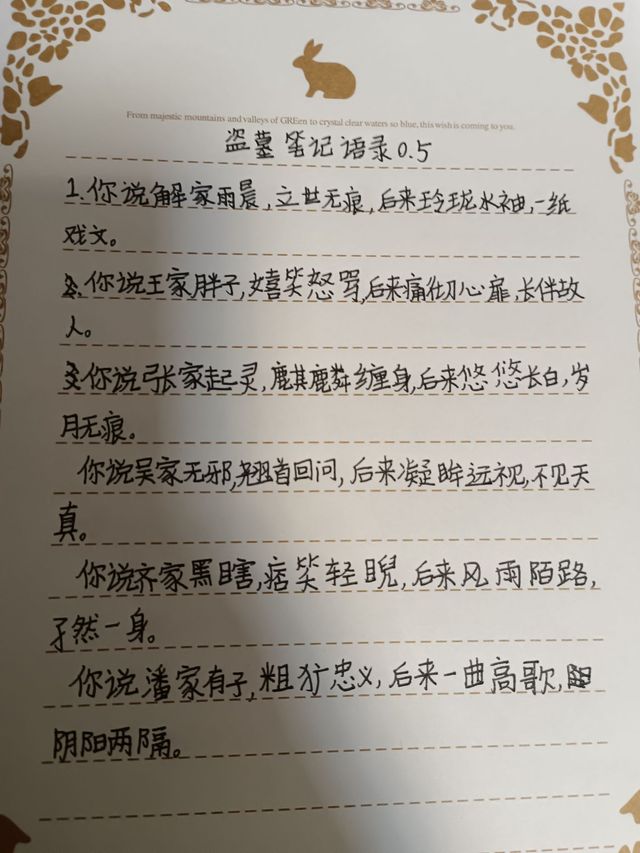 From majestic mountains and valleys of GREen to crystal clear waters so blue, this wish is coming to you.
盗墓笔记语录0.5
1.你说解家雨晨,立世无痕,后来玲珑水袖,一纸
戏文。
2.你说王家胖子,嬉笑怒骂,后来痛彻心扉,长伴故
人。
3.你说张家起灵,麒麟缠身,后来悠悠长白,岁
月无痕。
你说吴家无邪,翘首回问,后来凝眸远视,不见天
真。
你说齐家黑瞎,痞笑轻睨,后来风雨陌路,
孑然一身。
你说潘家有子,粗犷忠义,后来一曲高歌,
阴阳两隔。